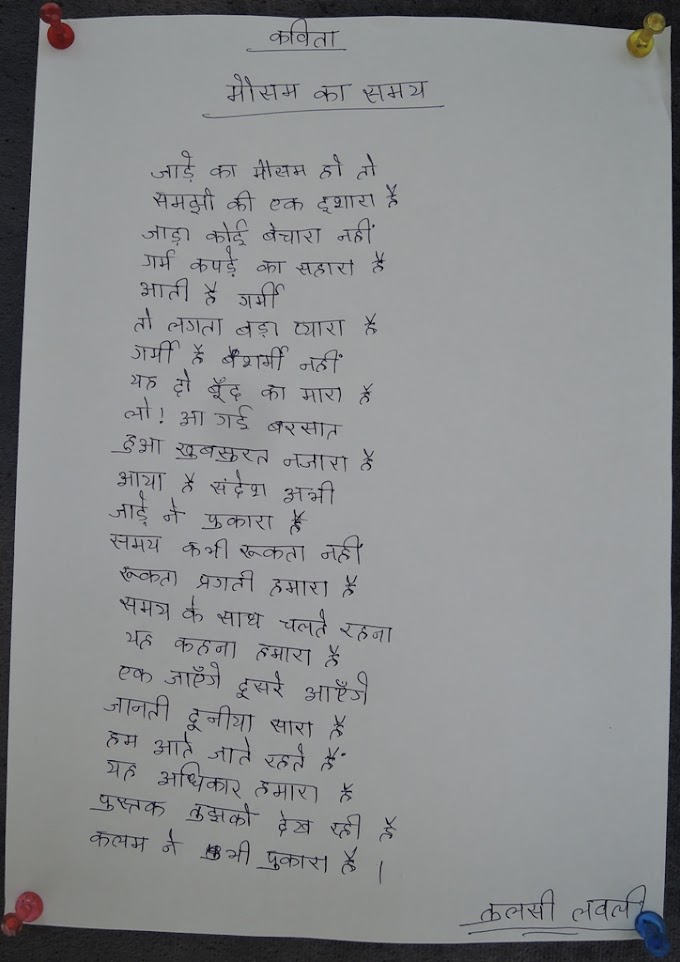 कविता
मौसम का समय
जाड़े का मौसम हो तो
समझो की एक इशारा है
जाड़ा कोई बेचारा नहीं
गर्म कपड़े का सहारा है
आती है गर्मी
तो लगता बड़ा प्यारा है
गर्मी है बेशर्मी नहीं
यह दो बूँद का मारा है
लो! आ गई बरसात
हुआ खुबसुरत नजारा है
आया है संदेश अभी
जाड़े ने पुकारा है
समय कभी रूकता नहीं
रूकता प्रगती हमारा है
समय के साथ चलते रहना
यह कहना हमारा है
एक जाएँगे दूसरे आएँगे
जानती दूनीया सारा है
हम आते जाते रहते हैं
यह अधिकार हमारा है
पुस्तक तुझको देख रही है
कलम ने भी पुकारा है।
तुलसी लवली